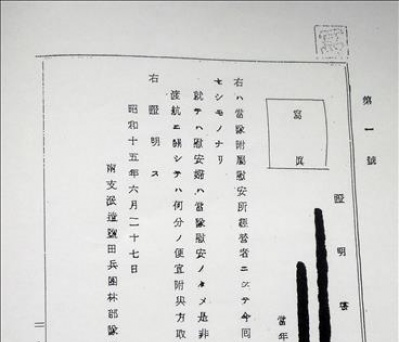 第一號
證明書
當年
寫眞
右ハ當隊附屬慰安所經營者ニシテ今回
セシモノナリ
就テハ慰安婦ハ當隊慰安ノタメ是非
渡航ニ關シテハ何分ノ便宜附與方取
右證明ス
昭和十五年六月二十七日
南支派遣鹽田兵團林部隊